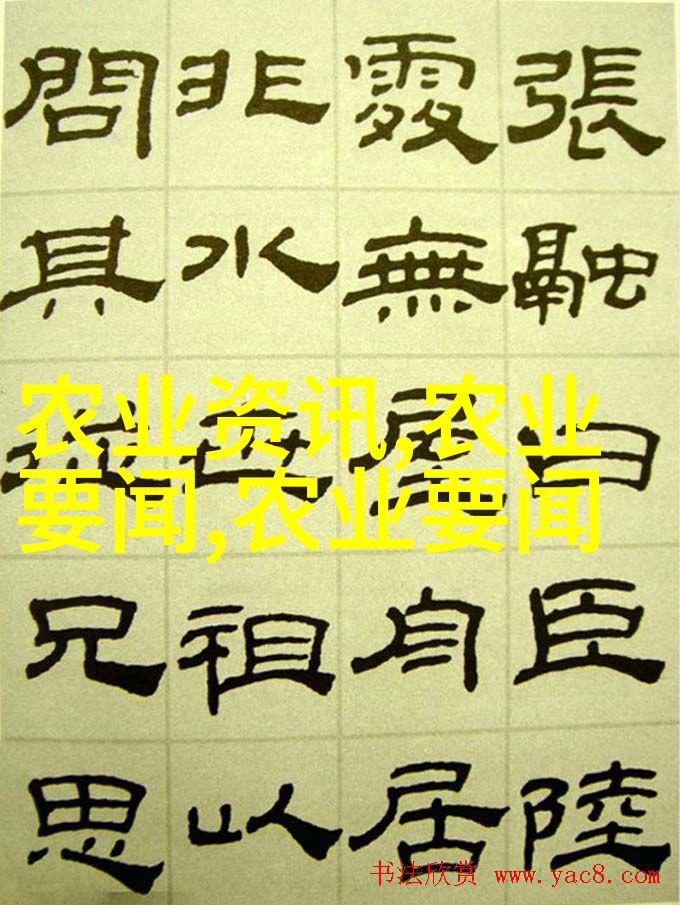 張融白臣陸
處無屋舟居
非水世祖以
問其從兄思
农业资讯,农业
要闻,农业要闻
书法欣赏 www.yac8.com